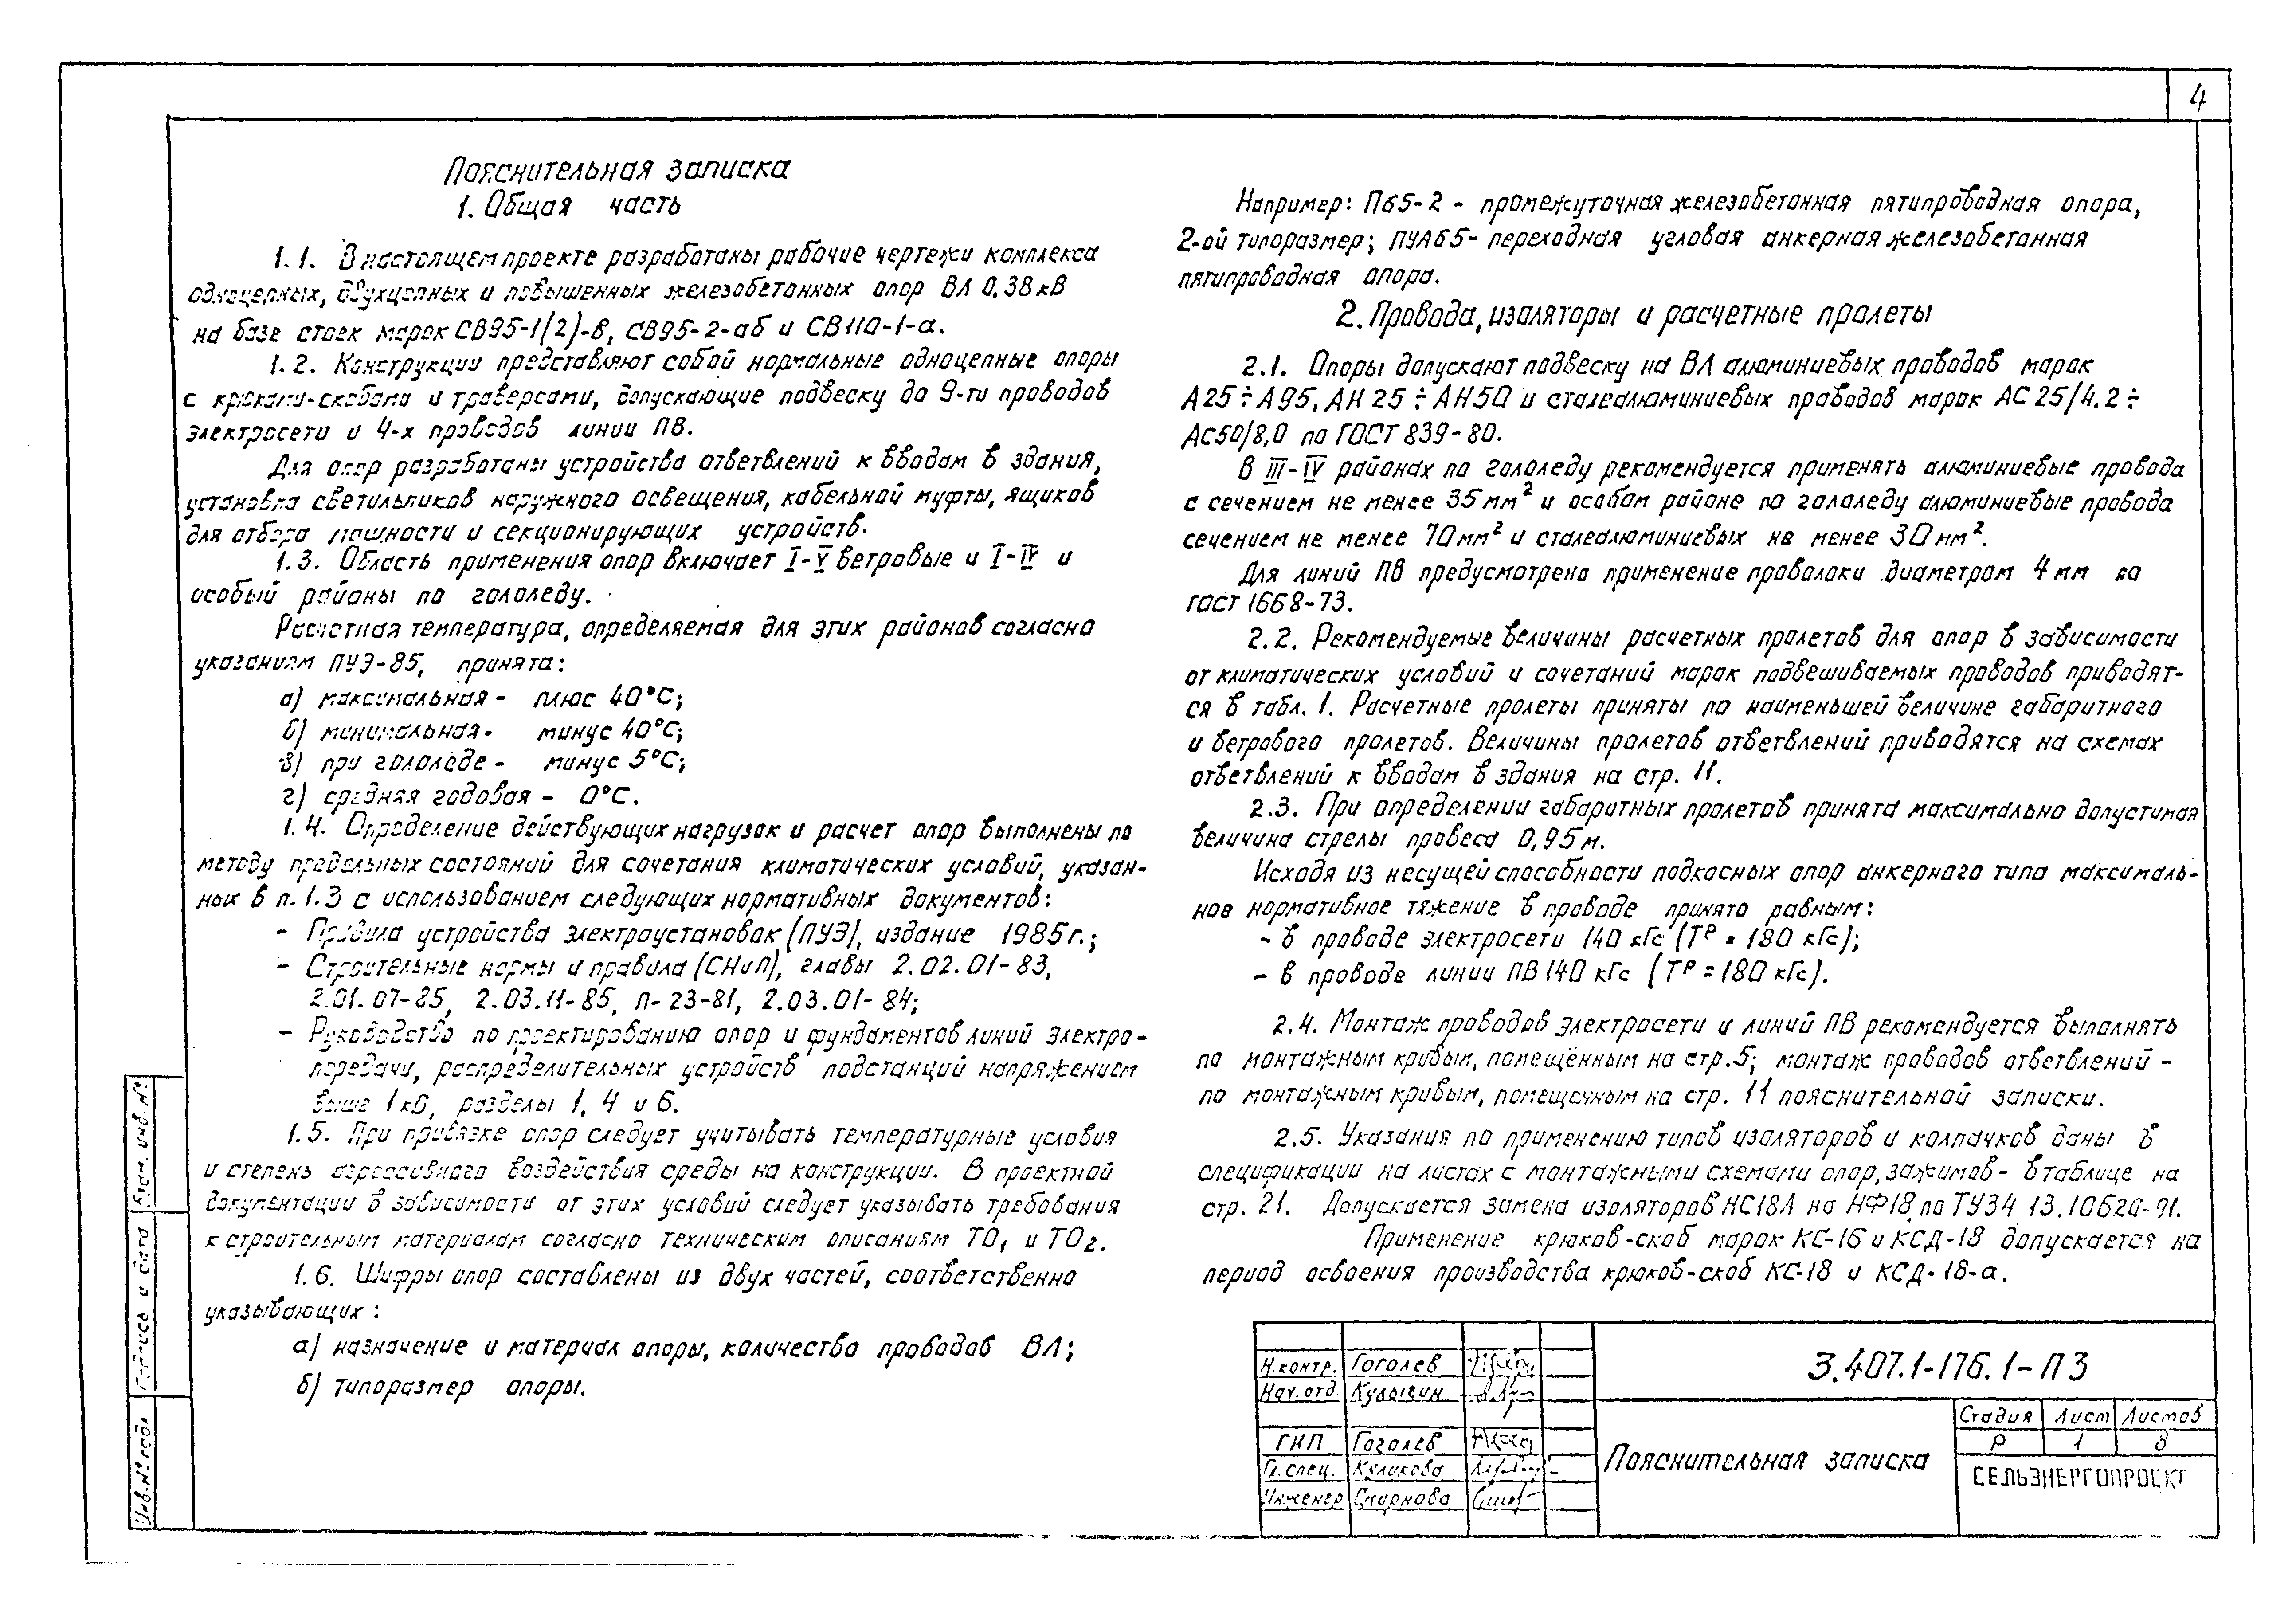 4
Пояснительная записка
1. Общая часть
1.1. В настоящем проекте разработаны рабочие чертежи комплекса
одноцепных, двухцепных и повышенных железобетонных опор ВЛ 0,38 кВ
на базе стоек марок СВ95-1(2)-в, СВ95-2-аб и СВ110-1-а.
1.2. Конструкции представляют собой нормальные одноцепные опоры
с крюками-скобами и траверсами, допускающие подвеску до 9-ти проводов
электросети и 4-х проводов линии ПВ.
Для опор разработаны устройства ответвлений к вводам в здания,
установка светильников наружного освещения, кабельной муфты, ящиков
для отбора мощности и секционирующих устройств.
1.3. Область применения опор включает I-V ветровые и I-IV и
особый районы по гололеду.
Расчетная температура, определяемая для этих районов согласно
указаниям ПУЭ-85, принята:
а) максимальная - плюс 40°С;
б) минимальная - минус 40°С;
в) при гололеде - минус 5°С;
г) средняя годовая - 0°С.
1.4. Определение действующих нагрузок и расчет опор выполнены по
методу предельных состояний для сочетания климатических условий, указан-
ных в п. 1.3 с использованием следующих нормативных документов:
- Правила устройства электроустановок (ПУЭ), издание 1985г.;
- Строительные нормы и правила (СНиП), главы 2.02.01-83,
2.01.07-85, 2.03.11-85, П-23-81, 2.03.01-84;
- Руководство по проектированию опор и фундаментов линий электро-
передачи, распределительных устройств подстанций напряжением
выше 1 кВ, разделы 1, 4 и 6.
1.5. При привязке опор следует учитывать температурные условия
и степень агрессивного воздействия среды на конструкции. В проектной
документации в зависимости от этих условий следует указывать требования
к строительным материалам согласно техническим описаниям ТО1 и ТО2.
1.6. Шифры опор составлены из двух частей, соответственно
указывающих:
а) назначение и материал опоры, количество проводов ВЛ;
б) типоразмер опоры.
Например: Пб5-2 - промежуточная железобетонная пятипроводная опора,
2-ой типоразмер; ПУАб5- переходная угловая анкерная железобетонная
пятипроводная опора.
2. Провода, изоляторы и расчетные пролеты
2.1. Опоры допускают подвеску на ВЛ алюминиевых проводов марок
А25÷А95, АН25÷АН50 и сталеалюминиевых проводов марок АС25/4.2÷
АС50/8,0 по ГОСТ 839-80.
В III-IV районах по гололеду рекомендуется применять алюминиевые провода
с сечением не менее 35мм² и особом районе по гололеду алюминиевые провода
сечением не менее 70мм² и сталеалюминиевых не менее 30мм².
Для линий ПВ предусмотрено применение проволоки диаметром 4мм по
ГОСТ 1668-73.
2.2. Рекомендуемые величины расчетных пролетов для опор в зависимости
от климатических условий и сочетаний марок подвешиваемых проводов приводят-
ся в табл. 1. Расчетные пролеты приняты по наименьшей величине габаритного
и ветрового пролетов. Величины пролетов ответвлений приводятся на схемах
ответвлений к вводам в здания на стр. 11.
2.3. При определении габаритных пролетов принята максимально допустимая
величина стрелы провеса 0,95м.
Исходя из несущей способности подкосных опор анкерного типа максималь-
ное нормативное тяжение в проводе принято равным:
- в проводе электросети 140 кГс (Тр = 180 кГс);
- в проводе линии ПВ 140 кГс (Тр = 180 кГс).
2.4. Монтаж проводов электросети и линий ПВ рекомендуется выполнять
по монтажным кривым, помещённым на стр.5; монтаж проводов ответвлений -
по монтажным кривым, помещенным на стр. 11 пояснительной записки.
2.5. Указания по применению типов изоляторов и колпачков даны в
спецификации на листах с монтажными схемами опор, зажимов - в таблице на
стр. 21. Допускается замена изоляторов НС18А на НФ18 по ТУ34 13.10620-91.
Применение крюков-скоб марок КС-16 и КСД-18 допускается на
период освоения производства крюков-скоб КС-18 и КСД-18-а.
Взам. инв. №
Подпись и дата
Инв. № подл
Н.контр. Гоголев
Нач.отд. Кулыгин
ГИП Гоголев
Гл.спец. Куликова
Инженер Смирнова
3.407.1-176.1-ПЗ
Пояснительная записка
Стадия Лист Листов
Р 1 8
СЕЛЬЭНЕРГОПРОЕКТ